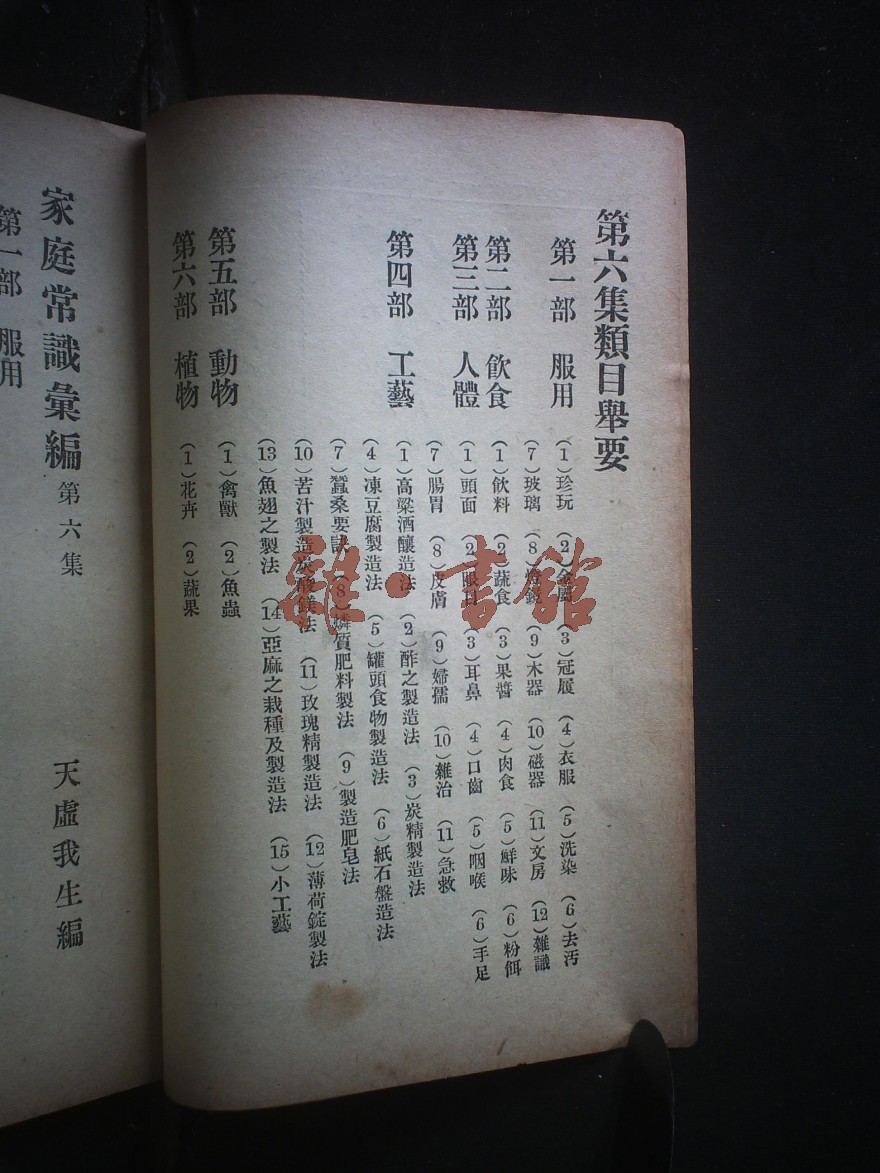 第六集類目舉要
第一部 服用
(1)珍玩 (2)金屬 (3)冠履 (4)衣服 (5)洗染 (6)去汚
(7)玻璃 (8)燈鏡 (9)木器 (10)磁器 (11)文房 (12)雜識
第二部 飲食
(1)飲料 (2)蔬食 (3)果醬 (4)肉食 (5)鮮味 (6)粉餌
第三部 人體
(1)頭面 (2)眼目 (3)耳鼻 (4)口齒 (5)咽喉 (6)手足
(7)腸胃 (8)皮膚 (9)婦孺 (10)雜治 (11)急救
第四部 工藝
(1)高粱酒釀造法 (2)酢之製造法 (3)炭精製造法
(4)凍豆腐製造法 (5)罐頭食物製造法 (6)紙石盤造法
(7)蠶桑要訣 (8)燐質肥料製法 (9)製造肥皂法
(10)苦汁製造炭酸鎂法 (11)玫瑰精製造法 (12)薄荷錠製法
(13)魚翅之製法 (14)亞麻之栽種及製造法 (15)小工藝
第五部 動物
(1)禽獸 (2)魚蟲
第六部 植物
(1)花卉 (2)蔬果
家庭常識彙編 第六集 天虛我生編
第一部 服用
雜·書館